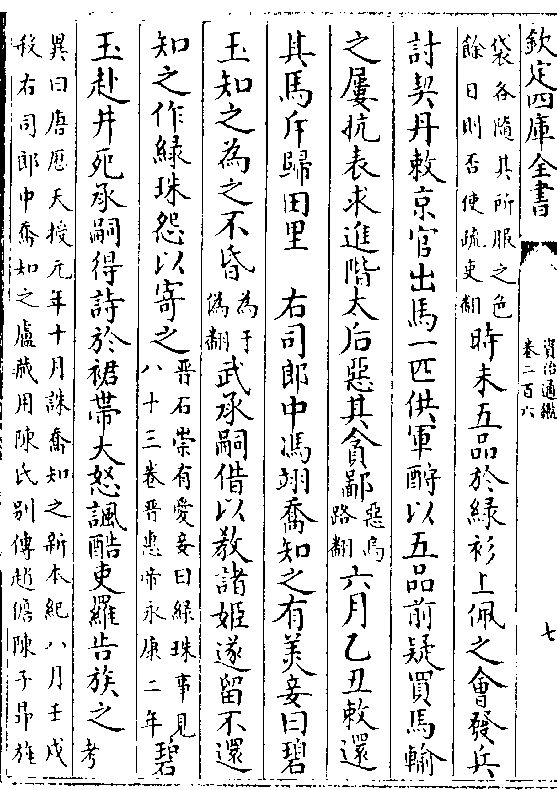 欽定四庫全書
資治通鑑
卷二百六
七
袋各隨其所服之色
餘日則否使疏吏翻
時未五品於緑衫上佩之會發兵
討契丹敕京官出馬一匹供軍酧以五品前疑買馬輸
之屢抗表求進階太后惡其貪鄙
惡烏
路翻
六月乙丑敕還
其馬斥歸田里　右司郎中馮翊喬知之有美妾曰碧
玉知之為之不昏
為于
偽翻
武承嗣借以教諸姬遂留不還
知之作緑珠怨以寄之
晉石崇有愛妾曰緑珠事見
八十三卷晉惠帝永康二年
碧
玉赴井死承嗣得詩於裙帶大怒諷酷吏羅告族之
考
異曰唐厯天授元年十月誅喬知之新本紀八月壬戌
殺右司郎中喬知之盧藏用陳氏别傳趙儋陳子昻旌